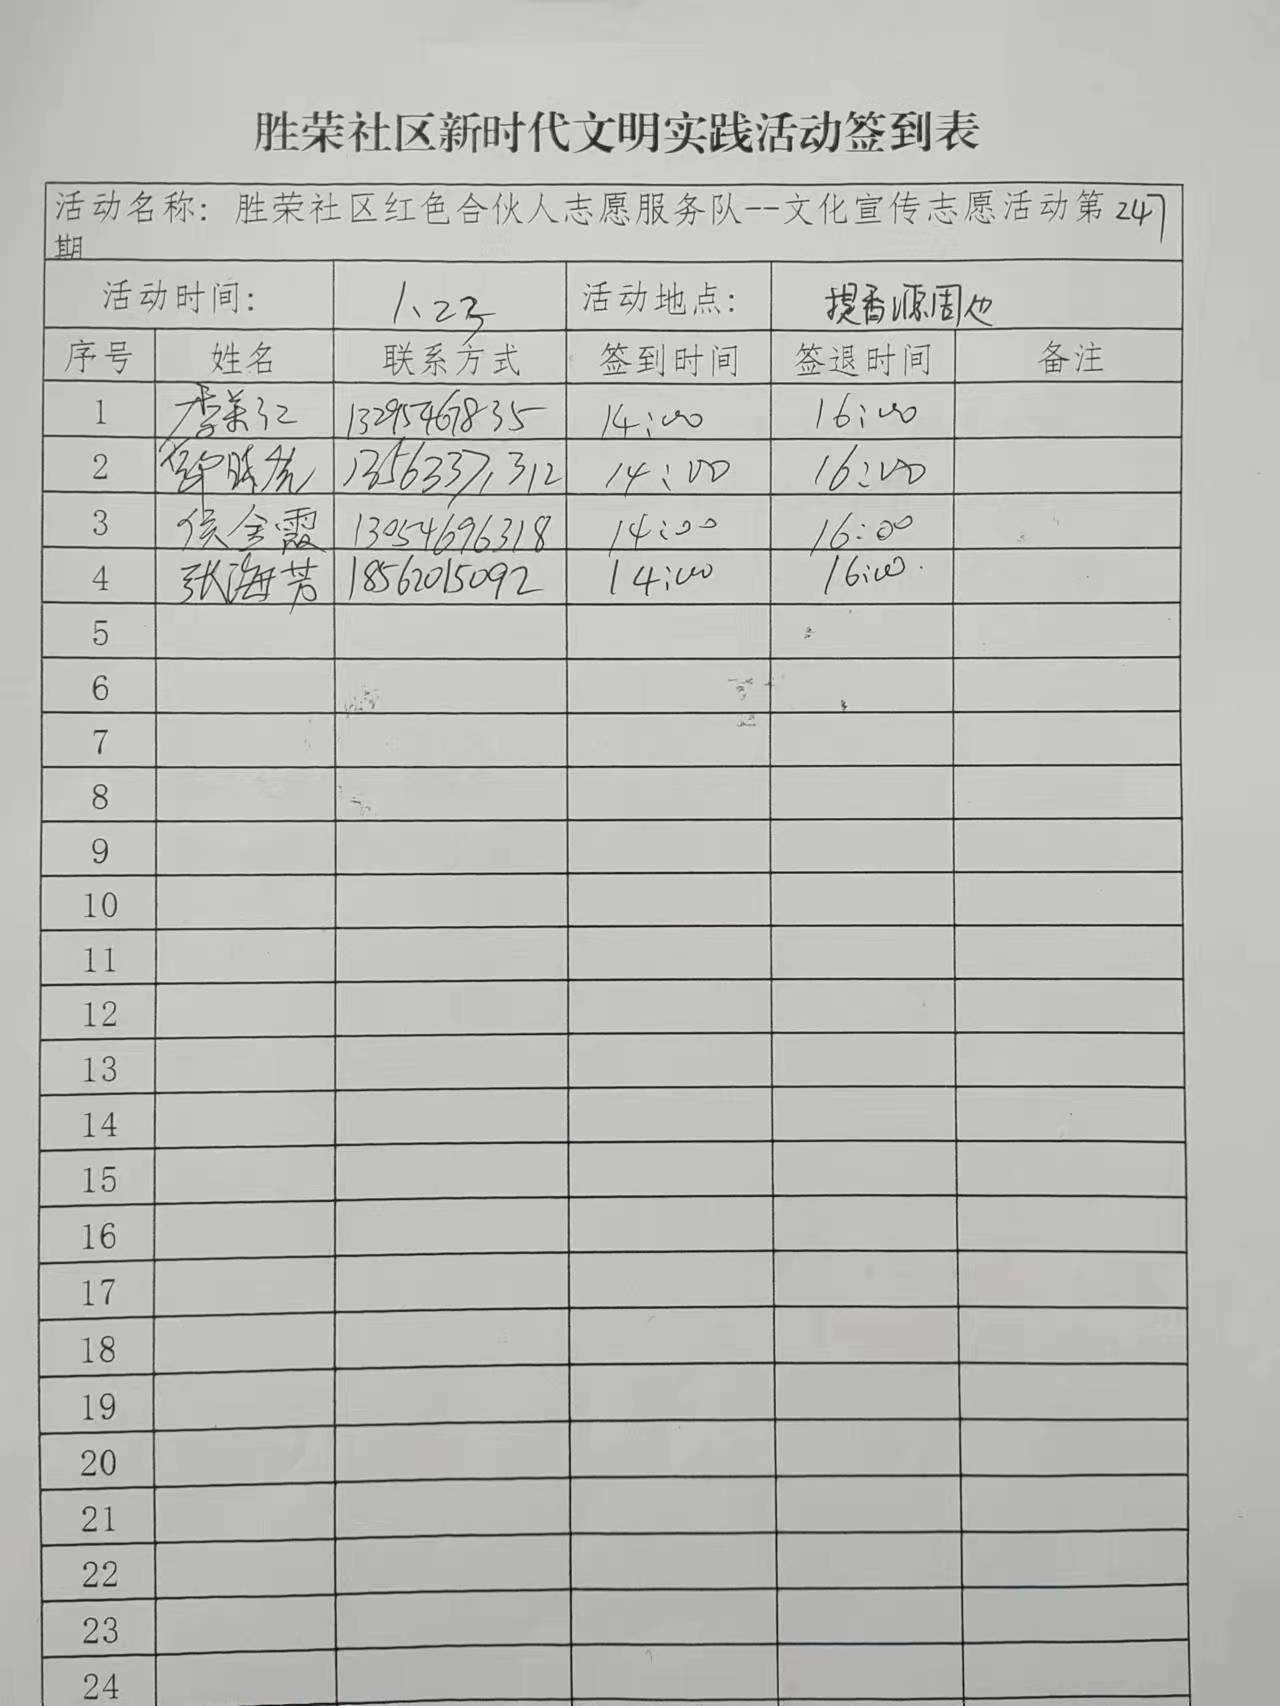 胜荣社区新时代文明实践活动签到表
活动名称：胜荣社区红色合伙人志愿服务队--文化宣传志愿活动第247
期
活动时间： 1.23 活动地点： 提香源周边
序号 姓名 联系方式 签到时间 签退时间 备注
1 李荣江 13295467835 14:00 16:00
2 13563371312 14:00 16:00
3 侯金霞 13054696318 14:00 16:00
4 张海芳 18562015092 14:00 16:00
5
6
7
8
9
10
11
12
13
14
15
16
17
18
19
20
21
22
23
24